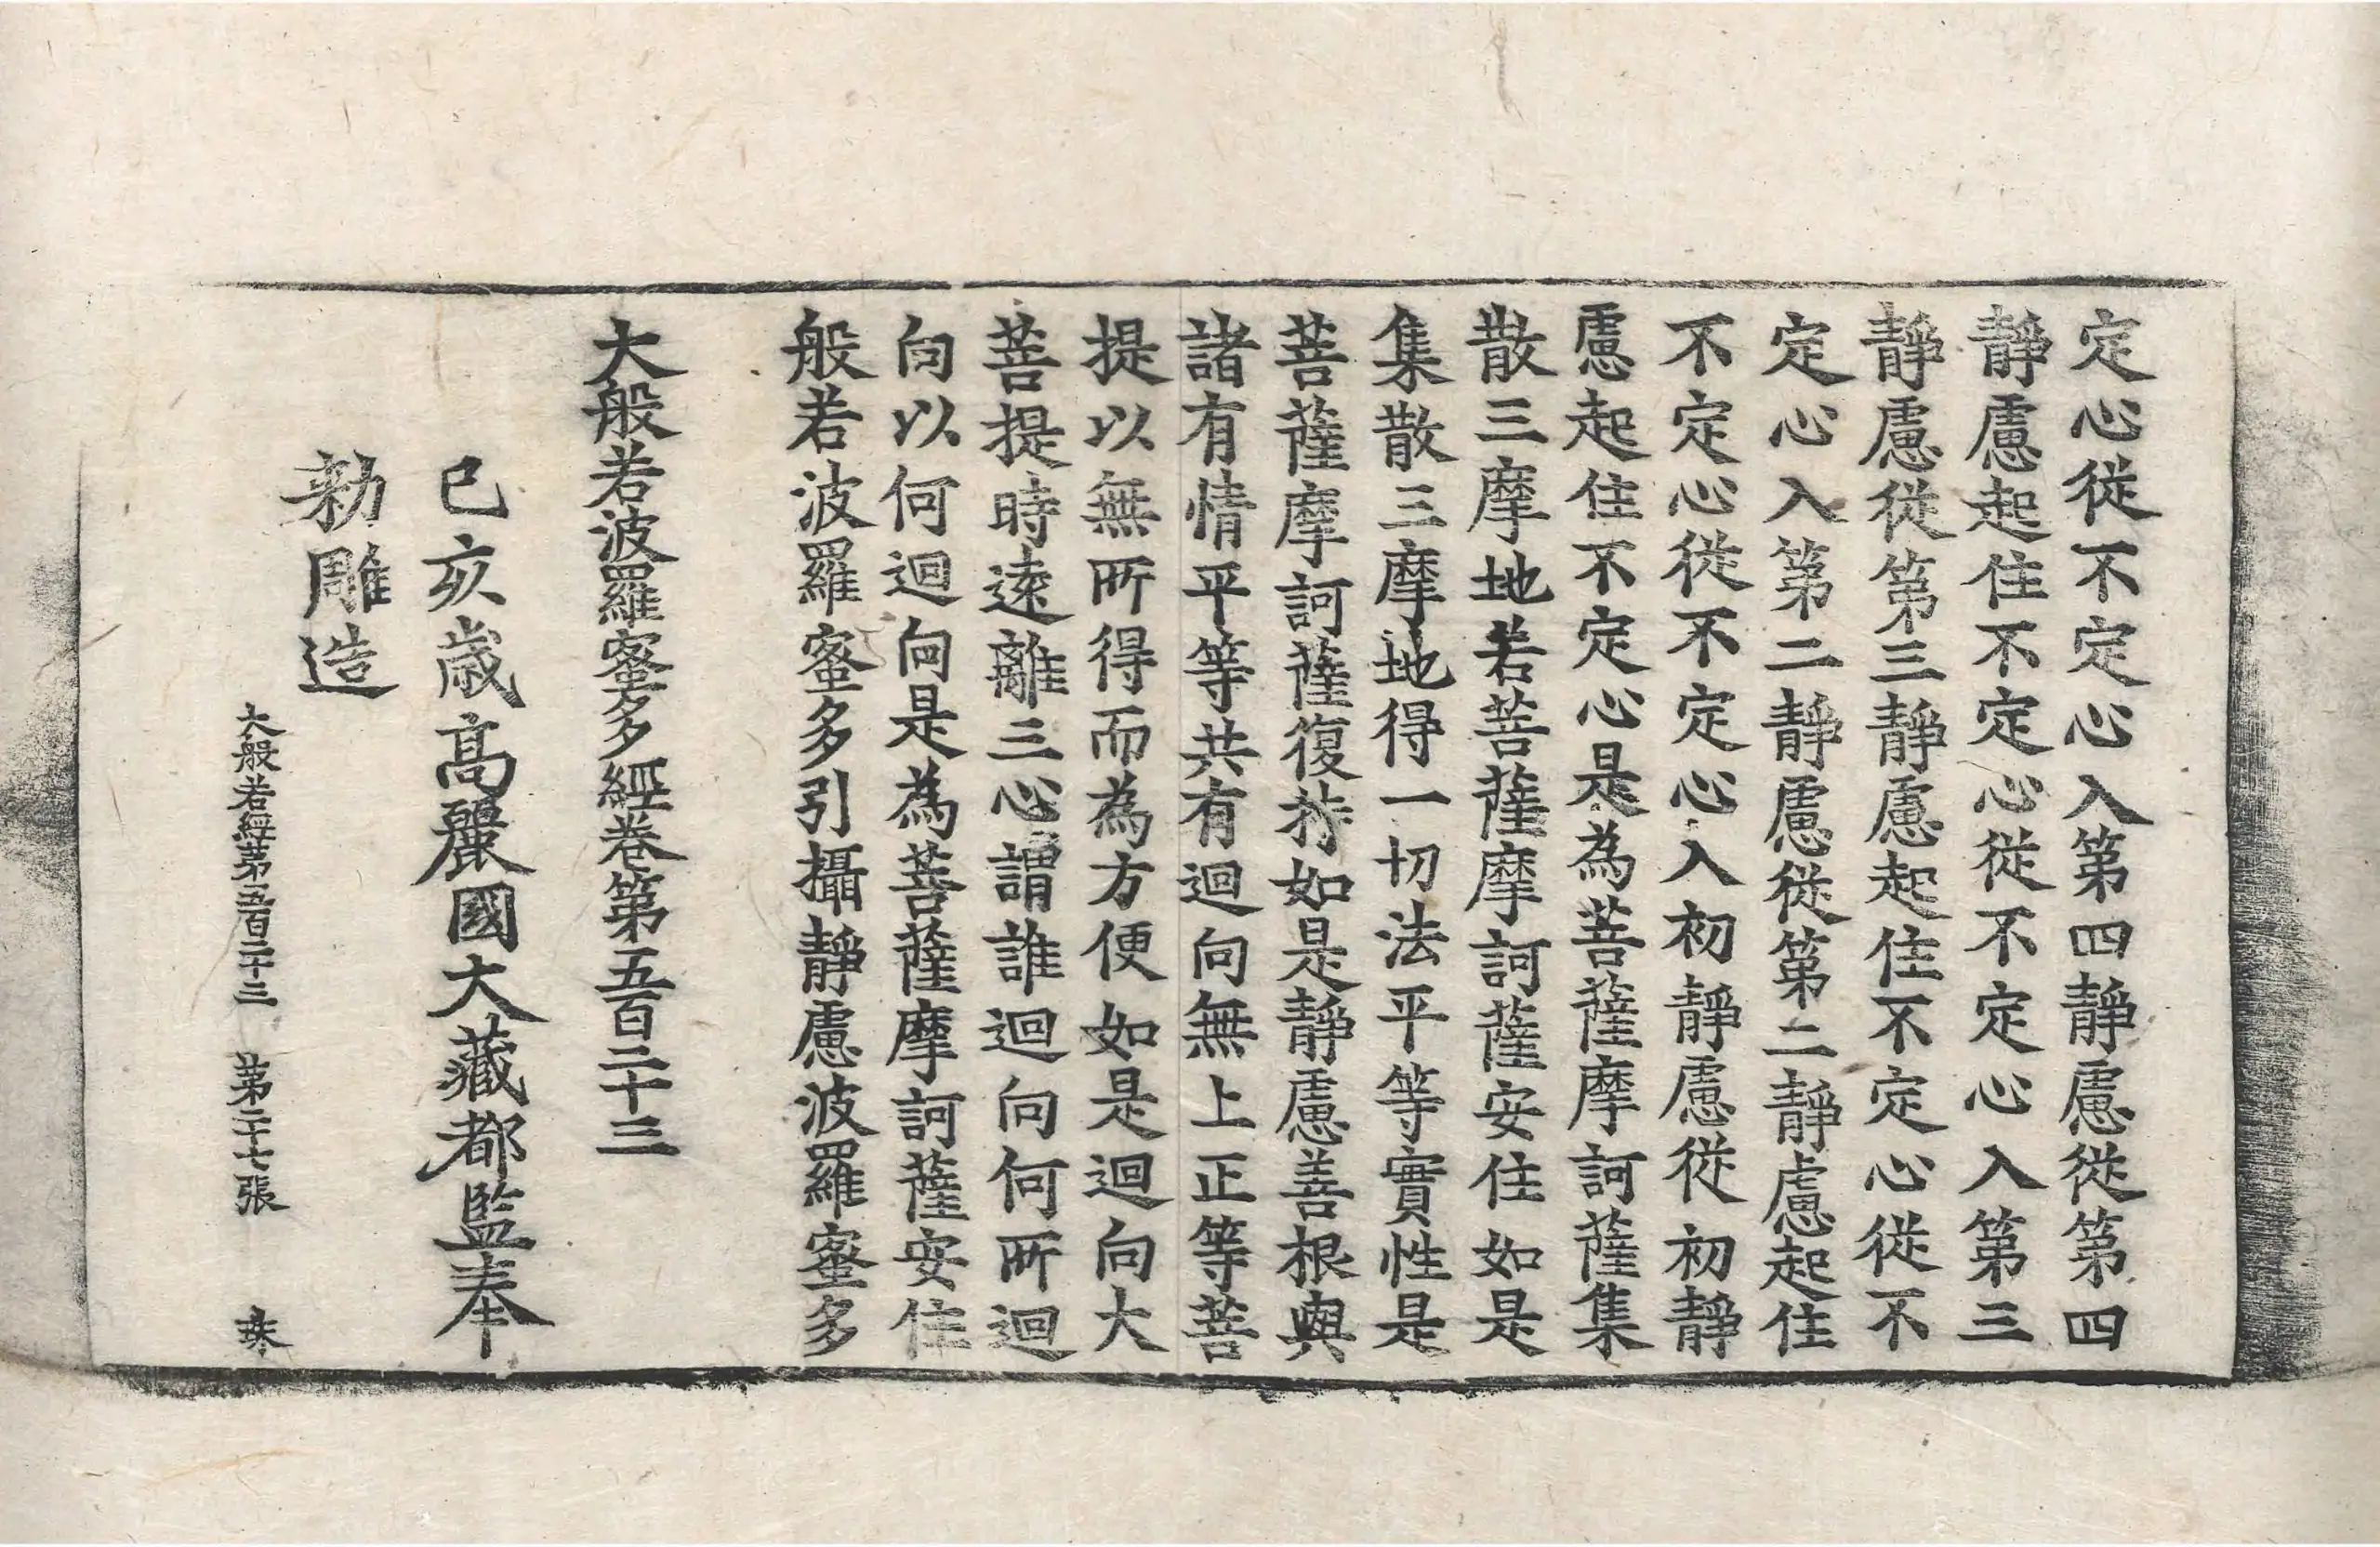 定心從不定心入第四靜慮從第四
靜慮起住不定心從不定心入第三
靜慮從第三靜慮起住不定心從不
定心入第二靜慮從第二靜慮起住
不定心從不定心入初靜慮從初靜
慮起住不定心是為菩薩摩訶薩集
散三摩地若菩薩摩訶薩安住如是
集散三摩地得一切法平等實性是
菩薩摩訶薩復持如是靜慮善根與
諸有情平等共有迴向無上正等菩
提以無所得而為方便如是迴向大
菩提時遠離三心謂誰迴向何所迴
向以何迴向是為菩薩摩訶薩安住
般若波羅蜜多引攝靜慮波羅蜜多
大般若波羅蜜多經卷第五百二十三
己亥歲高麗國大藏都監奉
勑雕造
大般若經第五百二十三 第二十七張 珠